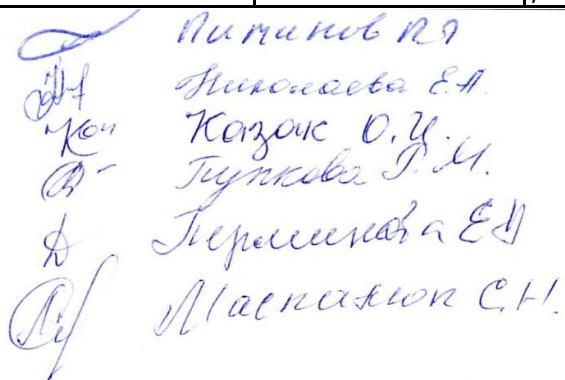 Питинов П.Я
Николаева Е.А.
Казак О.И.
Пупкова Р.М.
Перминова ЕА
Маспанюк С.Н.